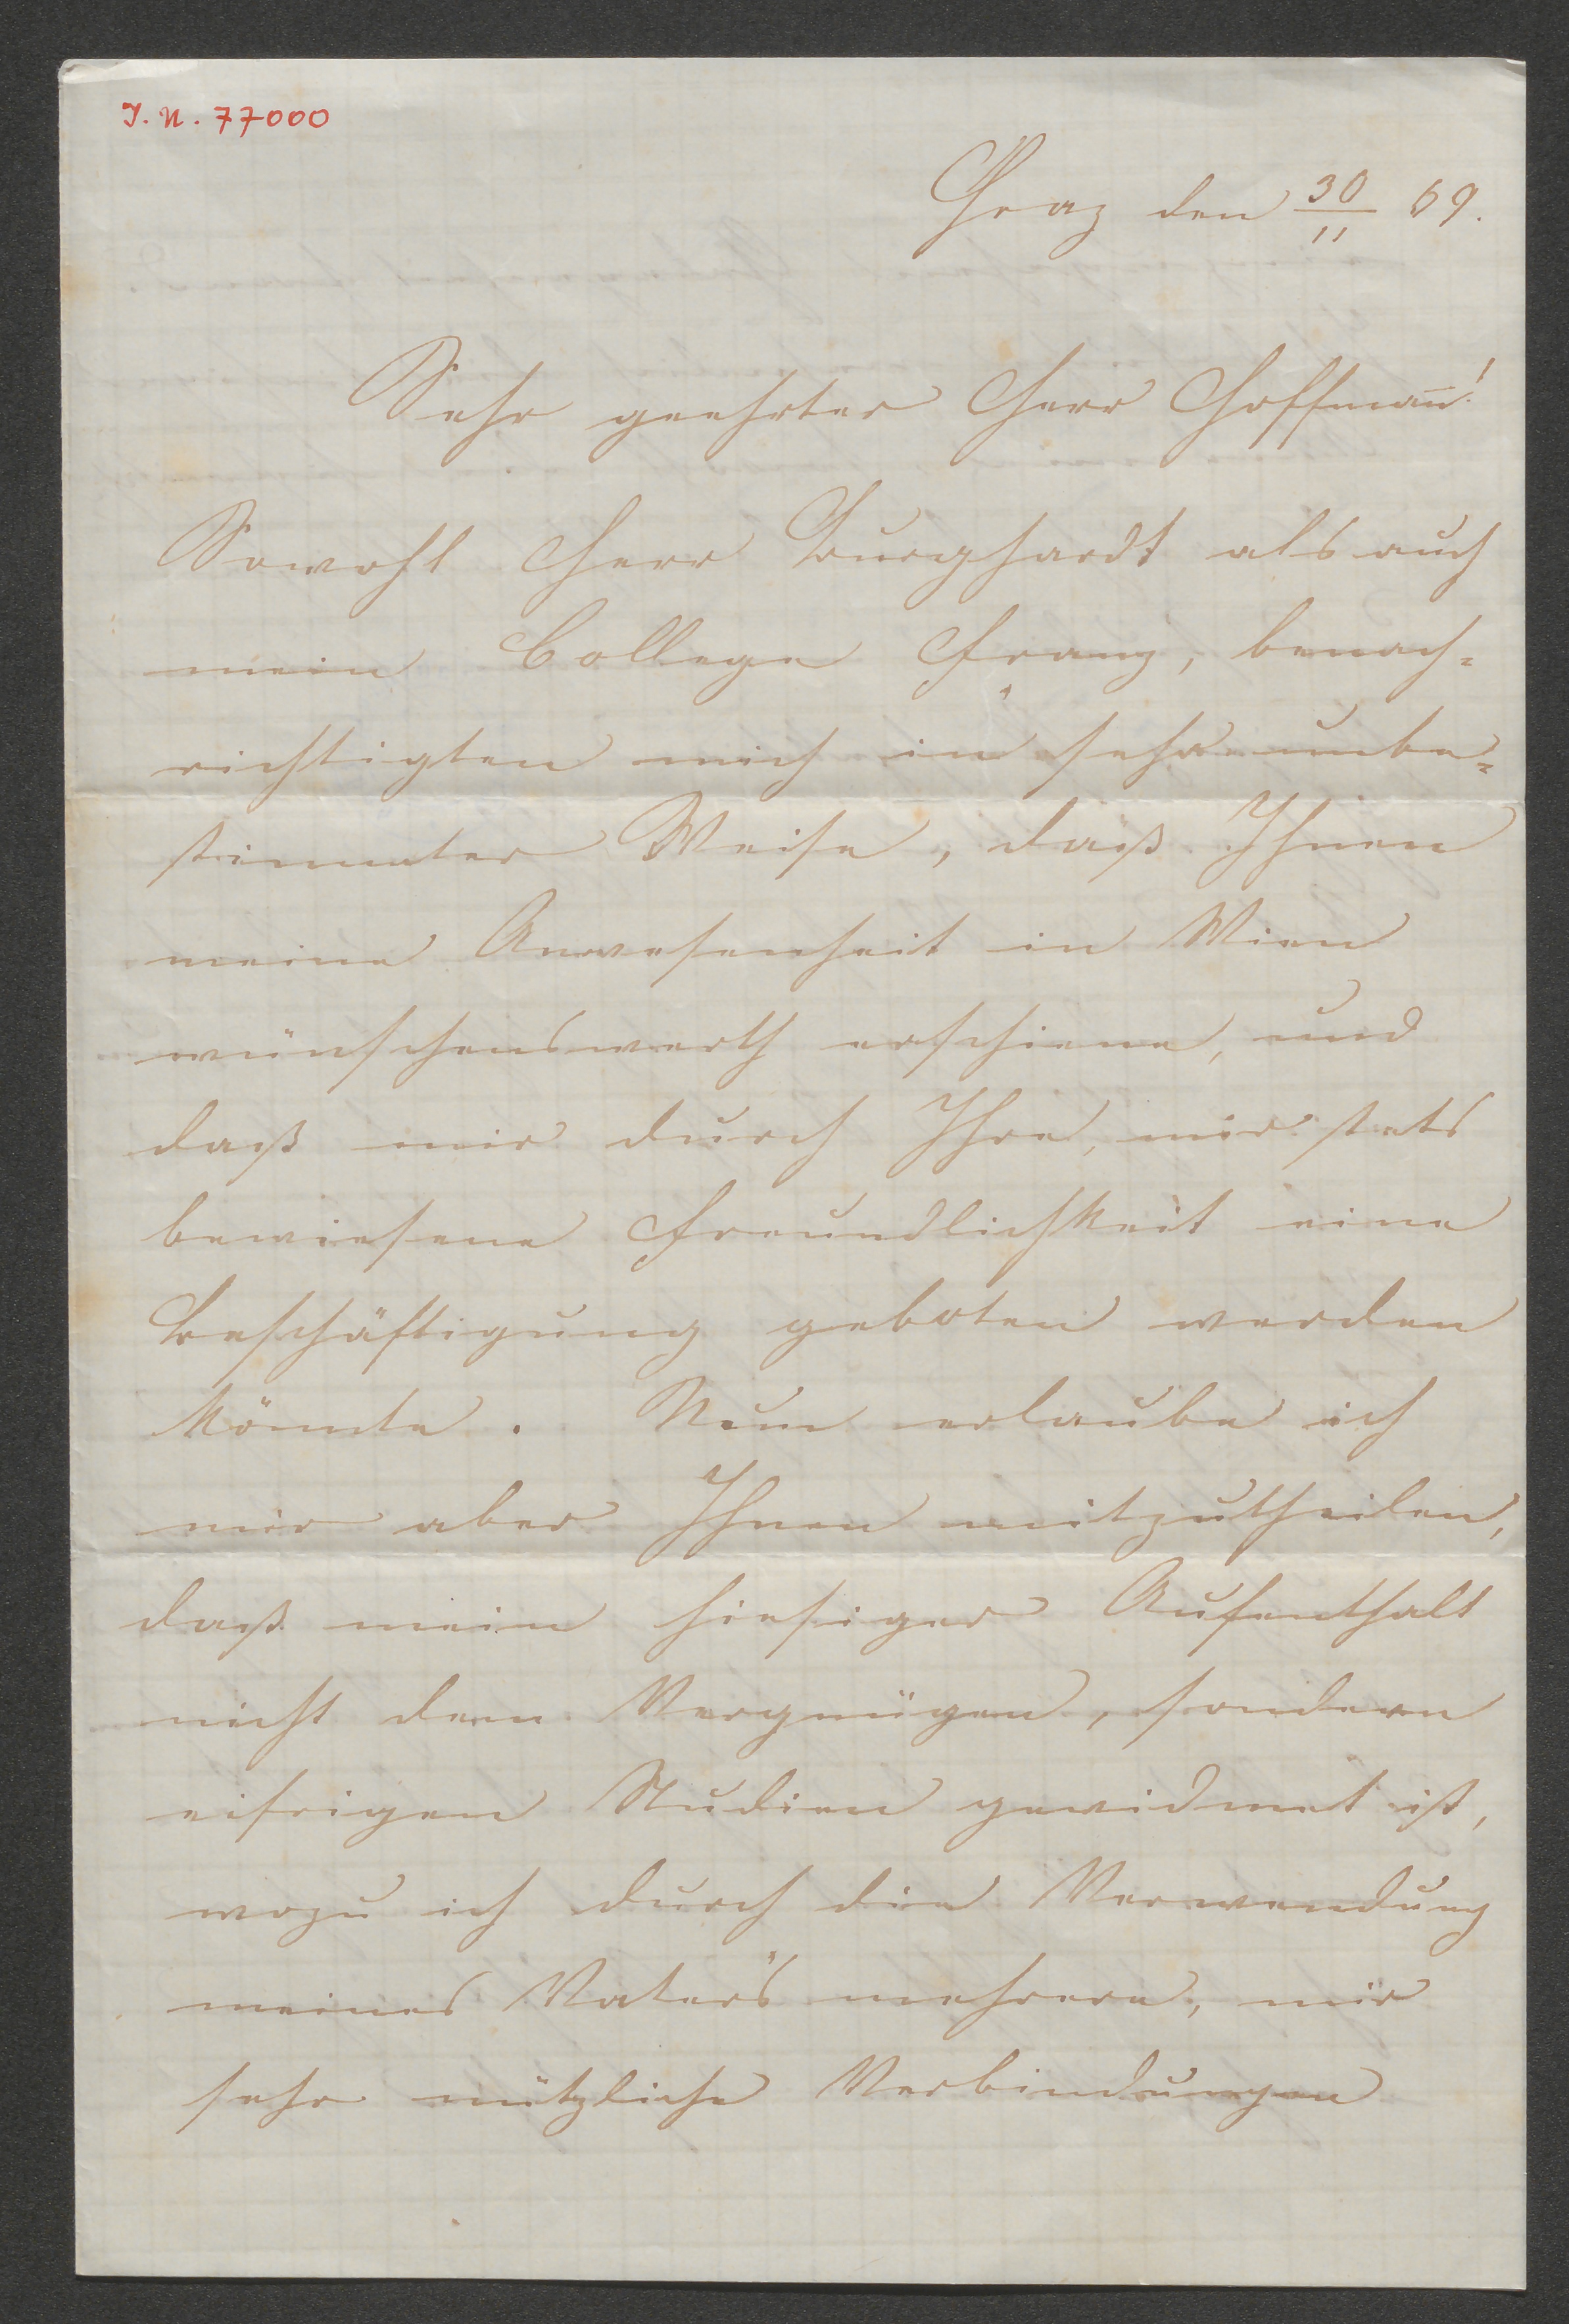 I. N. 77000
Graz den 30/11 69.
Sehr geehrter Herr Hoffman̄!
Sowohl Herr Burghardt als auch
mein College Franz, benach=
richtigten mich in sehr unbe=
stimmter Weise, daß Ihnen
meine Anwesenheit in Wien
wünschenswerth erschiene, und
daß mir durch Ihre, mir stets
bewiesene Freundlichkeit eine
Beschäftigung geboten werden
könnte. Nun erlaube ich
mir aber Ihnen mitzutheilen,
daß mein hiesiger Aufenthalt
nicht dem Vergnügen, sondern
eifrigen Studien gewidmet ist,
wozu ich durch die Verwendung
meines Vaters mehrere, mir
sehr nützliche Verbindungen